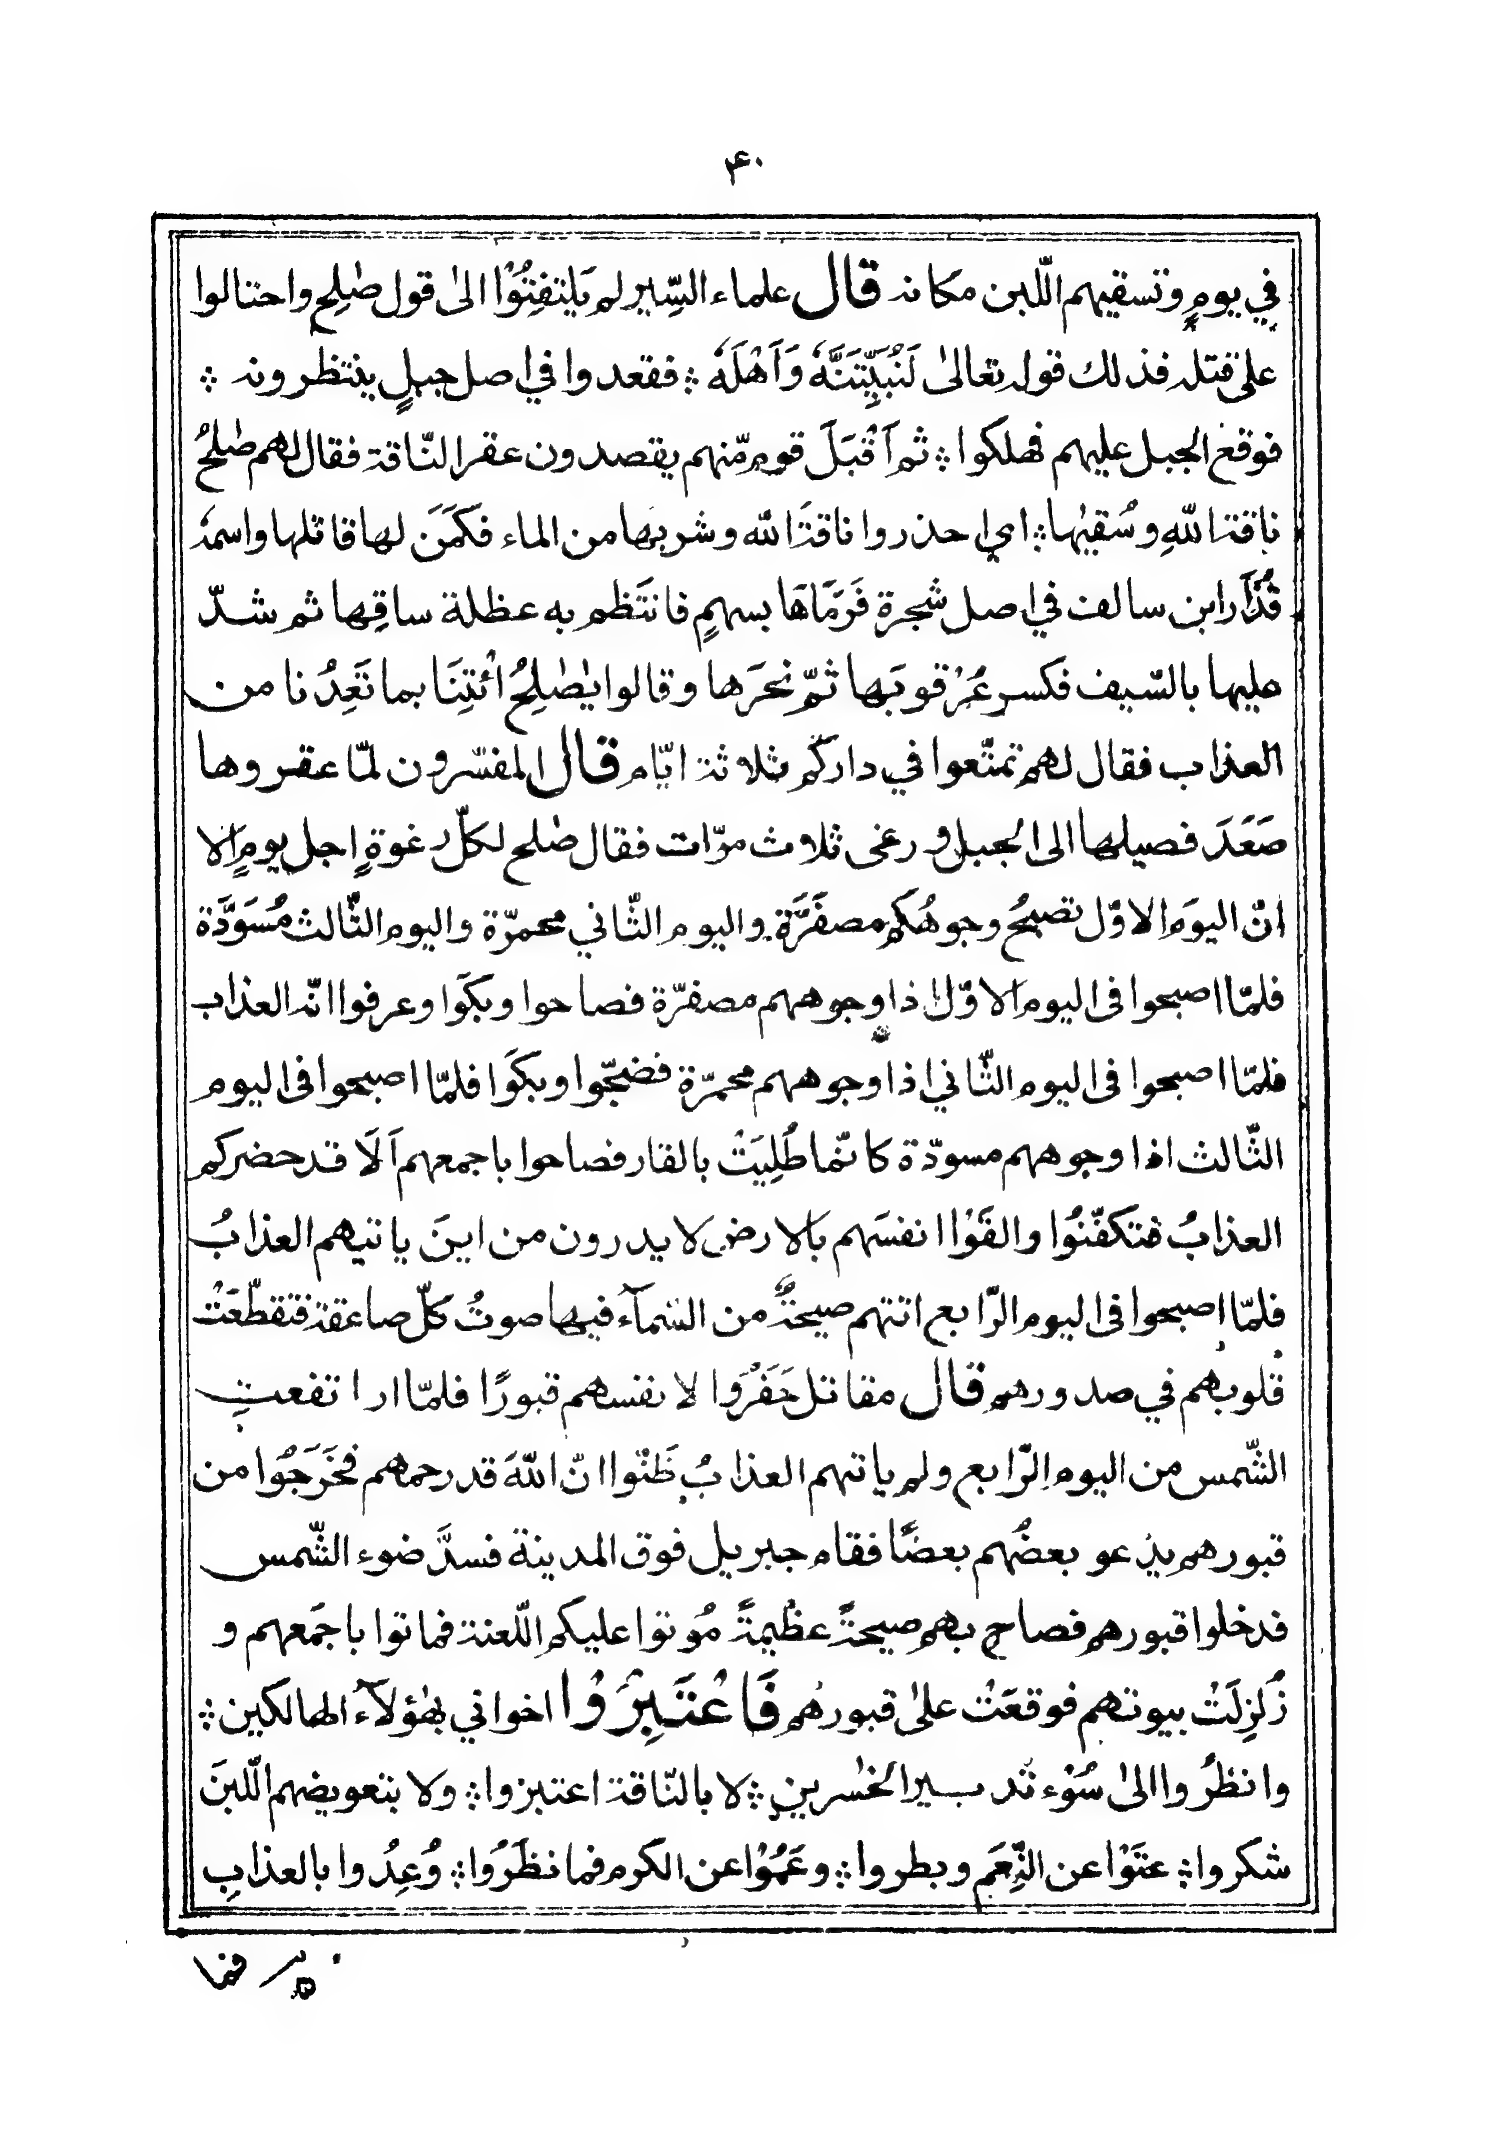 ۴۰
في يومٍ وتسقيهم اللّبن مكانه قال علماء السِّير لم يَلتفِتُوْا الىٰ قول صٰلِحٍ واحتالوا
علىٰ قتله فذلك قوله تعالىٰ لَنُبَيِّتَنَّهٗ وَاَهْلَهٗ ؞ فقعدوا في اصل جبلٍ ينتظرونه ؞
فوقع الجبل عليهم فهلكوا ؞ ثم اَقْبَلَ قوم مّنهم يقصدون عقر النّاقة فقال لهم صٰلحُ
ناقةَ اللهِ وسُقيٰها ؞ اي احذروا ناقةَ الله وشربها من الماء فكَمَنَ لها قاتلها واسمهٗ
قُدَار ابن سالف في اصل شجرة فَرَمَاهَا بسهمٍ فانتَظم به عظلة ساقِها ثم شدّ
عليها بالسّيف فكسر عُرْقوبَها ثمّ نحَرَها وقالوا يٰصٰلِحُ ائْتِنَا بما تَعِدُنا من
العذاب فقال لهم تمتّعوا في داركُم ثلاثة ايّام قال المفسّرون لمّا عقروها
صَعَدَ فصيلها الى الجبل ورغى ثلاث مرّات فقال صٰلح لكلّ رغوةٍ اجل يومٍ الا
انّ اليوَم الاوّل تصبحُ وجوهُكم مصفَرَّة واليوم الثّاني محمرّة واليوم الثّالث مُسَوَّدَة
فلمّا اصبحوا فى اليوم الاوّل اذا وجوههم مصفرّة فصاحوا وبكَوا وعرفوا انّه العذاب
فلمّا اصبحوا فى اليوم الثّاني اذا وجوههم محمرّة فضجّوا وبكَوا فلمّا اصبحوا فى اليوم
الثّالث اذا وجوههم مسودّة كانّما طُلِيَتْ بالقار فصاحوا باجمعهم اَلَا قد حضركم
العذابُ فتكفّنُوا والقَوْا انفسَهم بالارض لا يدرون من اينَ ياتيهم العذابُ
فلمّا اصبحوا فى اليوم الرّابع اتتهم صيحةٌ من السّمآء فيها صوتُ كلّ صاعقة فتقطّعَتْ
قلوبهم في صدورهم قال مقاتل حَفَرُوا لانفسهم قبورًا فلمّا ارتفعتِ
الشّمس من اليوم الرّابع ولم ياتهم العذابُ ظَنّوا انّ اللّٰهَ قد رحمهم فخَرَجُوا من
قبورهم يدعو بعضُهم بعضًا فقام جبريل فوق المدينة فسدَّ ضوء الشّمس
فدخلوا قبورهم فصاح بهم صيحةً عظيمةً مُوتوا عليكم اللّعنة فماتوا باجمَعهم و
زُلزِلَتْ بيوتهم فوقعَتْ علىٰ قبورهُم فَاعْتَبِرُوْا اخواني بهٰؤلآء الهالكين ؞
وانظرُوا الىٰ سُوْء تدبير الخٰسرين ؞ لا بالنّاقة اعتبروا ؞ ولا بتعويضهم اللّبنَ
شكروا ؞ عتَوْا عن النِّعَم وبطروا ؞ وعَمُوْا عن الكرم فما نظَرُوا ؞ وُعِدُوا بالعذابِ
فما